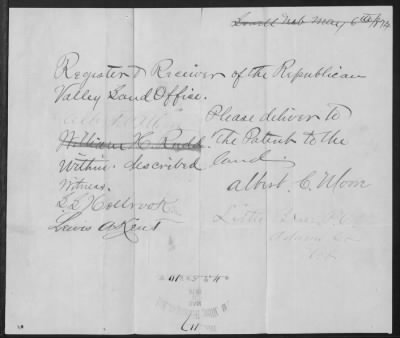 Lowell Neb May 6th 1874
Register & Receiver of the Republican
Valley Land Office.
Please deliver to
William H. Rudd. The Patent to the
Within described land.
Witness. Albert C. Moon
Holbrook
Lewis A Kent
Adams Co